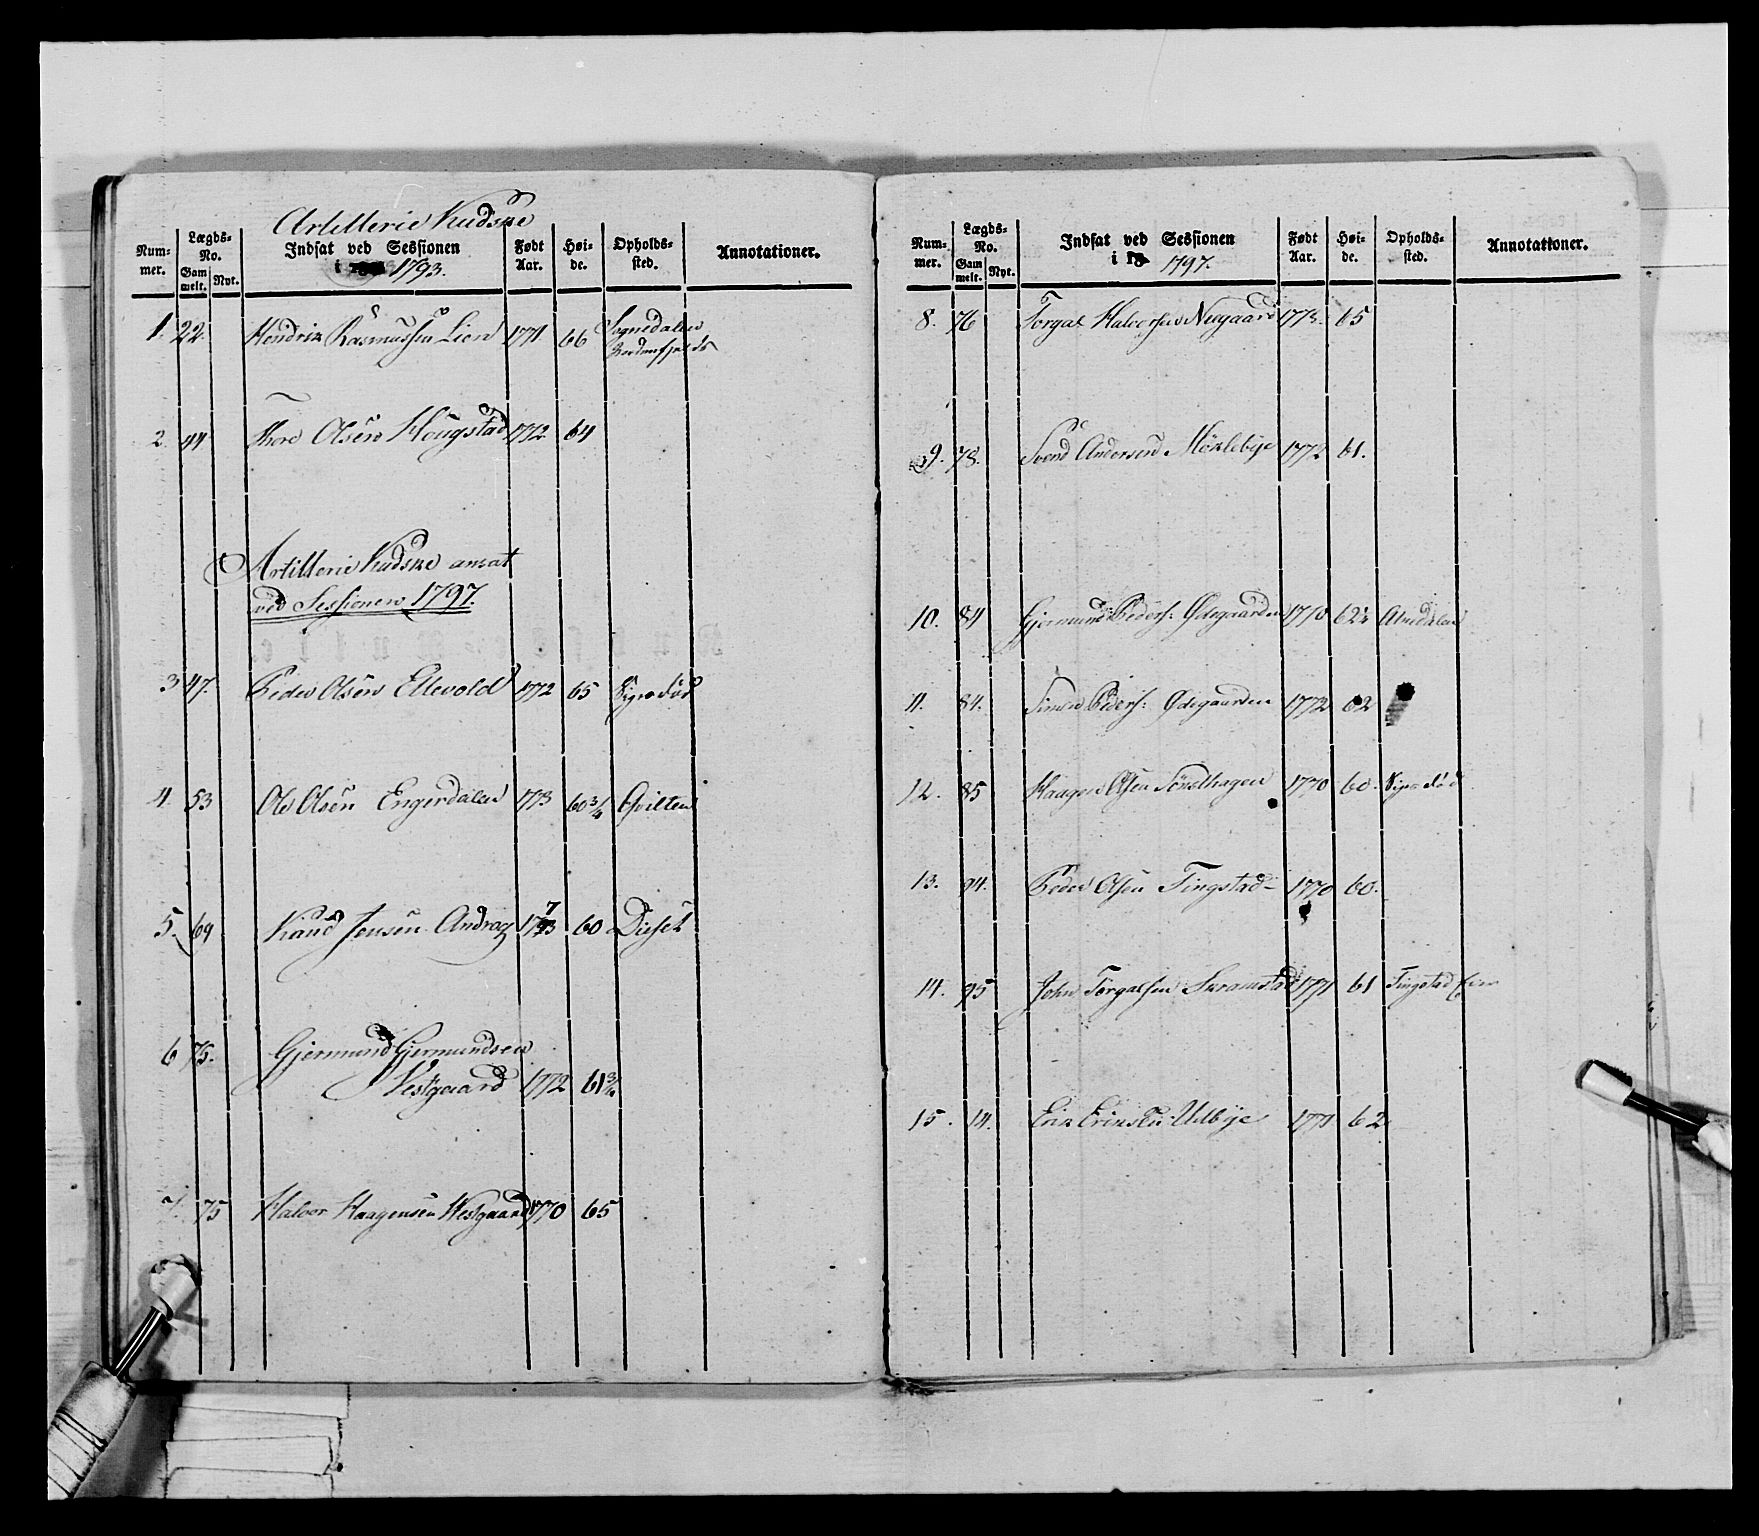 Artillerie Kudske
Num-
mer.
Lægds-
No.
Gam
melt.
Nyt.
Indsat ved Sessionen
i 1793.
Født
Aar.
Høi-
de.
Opholds-
sted.
Annotationer.
1. 22. Hendrik Rasmussen Lien 1771 66 Sognedalen
Nordenfjelds
2. 44 Thore Olsen Hougstad 1772 64
Artillerie Kudske ansat
ved Sessionen 1797.
3 47. Peder Olsen Ellevold 1772 65
4. 53 Ole Olsen Engerdalen 1773 60 3/4 Qvilten
5. 69 Knud Jensen Andraa 1773 60
6 75. Gjermund Gjermundsen
Westgaard 1772 61 3/4
7. 75 Halvor Haagensen Westgaard 1770 65
Num-
mer.
Lægds-
No.
Gam
melt.
Nyt.
Indsat ved Sessionen
i 1797.
Født
Aar.
Høi-
de.
Opholds-
sted.
Annotationer.
8. 76 Torgal Halvorsen Nygaard 1773. 65
9. 78. Svend Andersen Möklebye 1772 61.
10. 84 Gjermund Peders: Ödegaarden 1770 62½
11. 84. Simen Peders: Ödegaarden 1772 62
12. 85 Haagen Olsen 1770 60.
13. 94. Peder Olsen Tingstad 1770 60.
14. 95 John Torgalsen Skramstad 1771 61 Tingstad Eier
15. 14. Erik Eriksen Udbye 1771 62